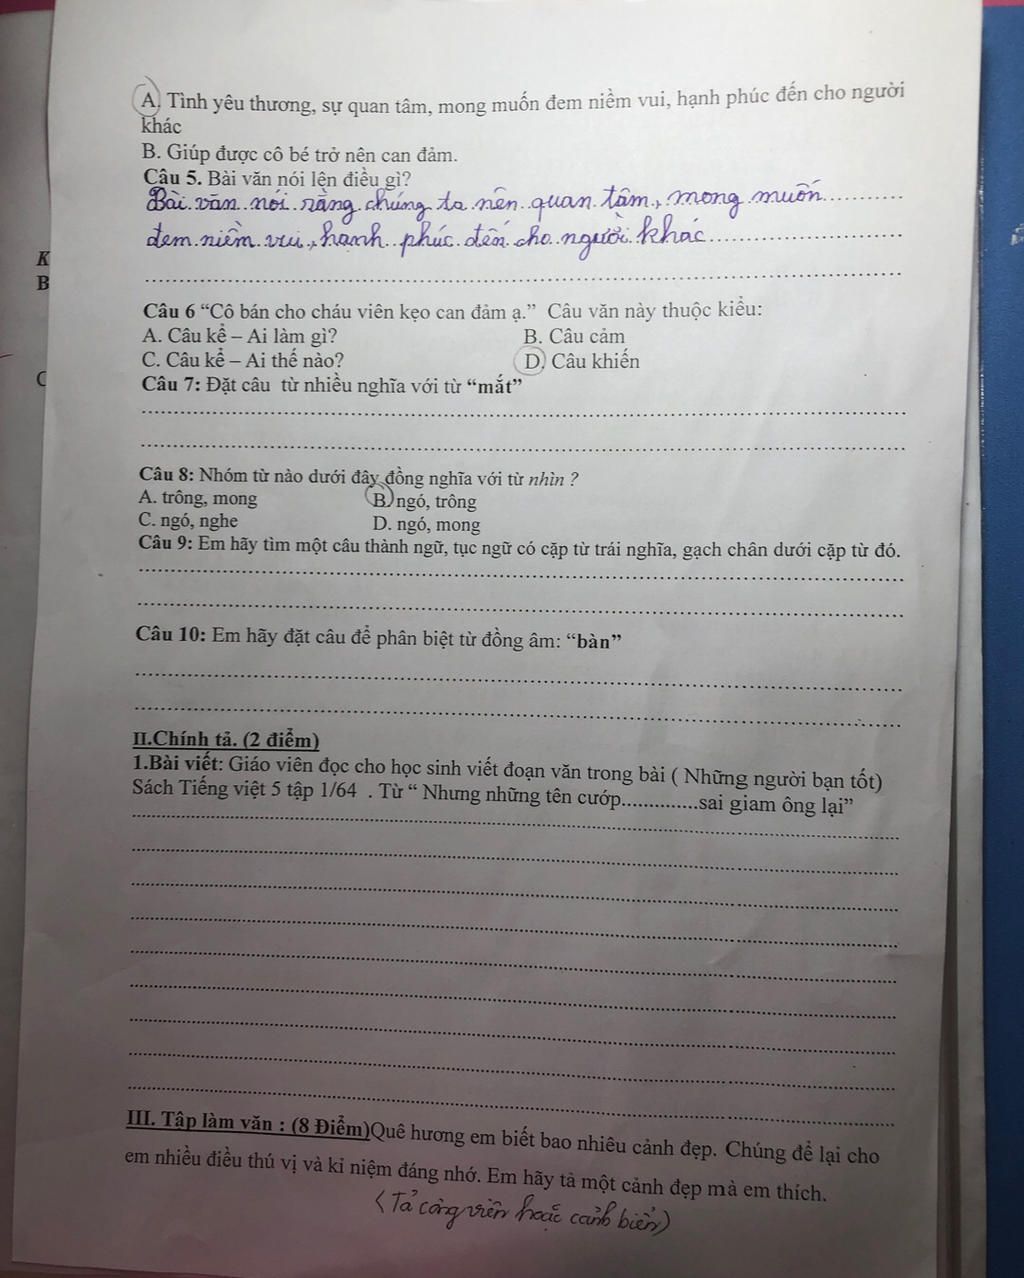 A. Tình yêu thương, sự quan tâm, mong muốn đem niềm vui, hạnh phúc đến cho người
khác
B. Giúp được cô bé trở nên can đảm.
Câu 5. Bài văn nói lên điều gì?
Bài văn nói rằng chúng ta nên quan tâm, mong muốn
đem niềm vui, hạnh phúc đến cho người khác
K
B
C
Câu 6 “Cô bán cho cháu viên kẹo can đảm ạ.” Câu văn này thuộc kiểu:
A. Câu kể – Ai làm gì? B. Câu cảm
C. Câu kể – Ai thế nào? D. Câu khiến
Câu 7: Đặt câu từ nhiều nghĩa với từ “mắt”
Câu 8: Nhóm từ nào dưới đây đồng nghĩa với từ nhìn ?
A. trông, mong B. ngó, trông
C. ngó, nghe D. ngó, mong
Câu 9: Em hãy tìm một câu thành ngữ, tục ngữ có cặp từ trái nghĩa, gạch chân dưới cặp từ đó.
Câu 10: Em hãy đặt câu để phân biệt từ đồng âm: “bàn”
II.Chính tả. (2 điểm)
1.Bài viết: Giáo viên đọc cho học sinh viết đoạn văn trong bài ( Những người bạn tốt)
Sách Tiếng việt 5 tập 1/64 . Từ “ Nhưng những tên cướp..............sai giam ông lại”
III. Tập làm văn : (8 Điểm)Quê hương em biết bao nhiêu cảnh đẹp. Chúng để lại cho
em nhiều điều thú vị và kỉ niệm đáng nhớ. Em hãy tả một cảnh đẹp mà em thích.
(Tả công viên hoặc cảnh biển)